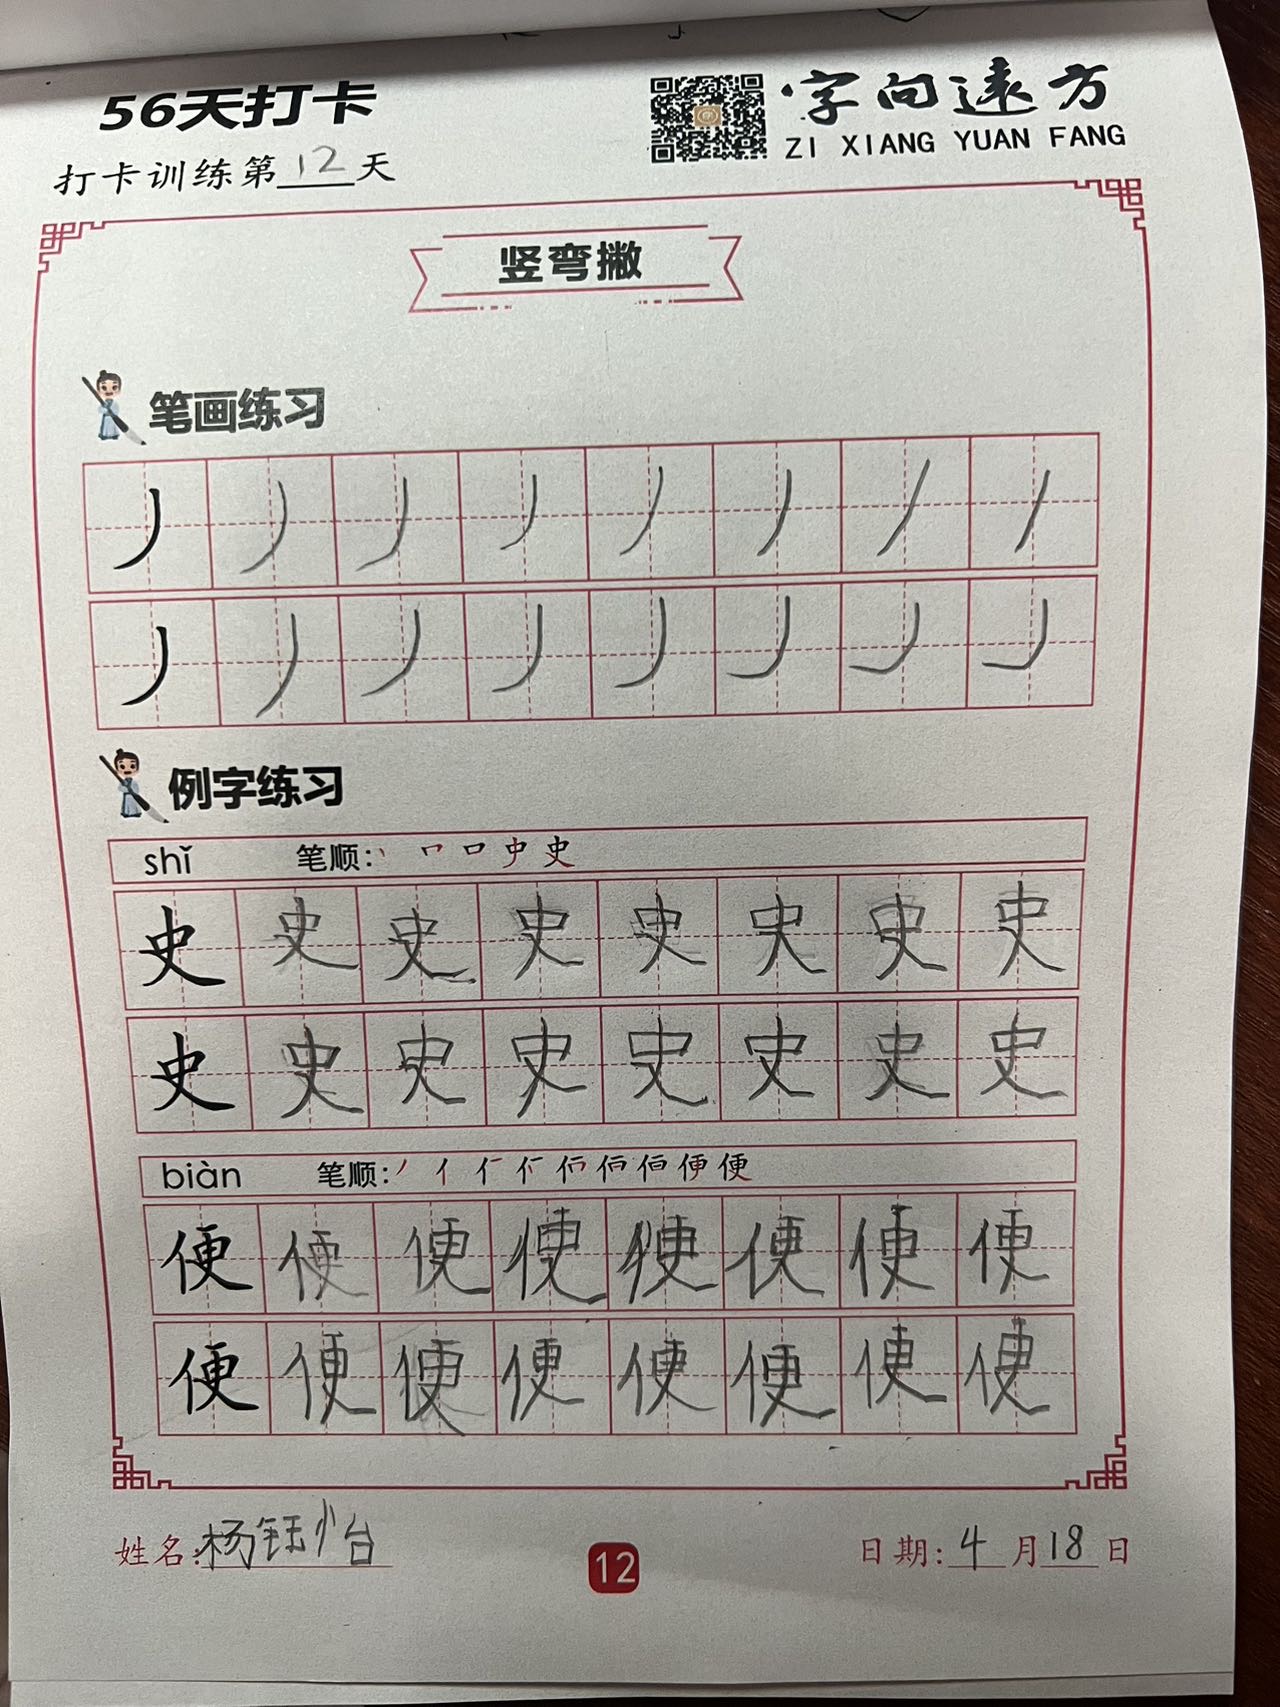 56天打卡
字向远方
ZI XIANG YUAN FANG
打卡训练第12天
竖弯撇
笔画练习
丿丿丿丿丿丿丿丿
丿丿丿丿丿丿丿丿
例字练习
shǐ 笔顺：丶 口 史
史史史史史史史史
史史史史史史史史
biàn 笔顺：丿 亻 便
便便便便便便便便
便便便便便便便便
姓名：杨钰怡
12
日期：4月18日